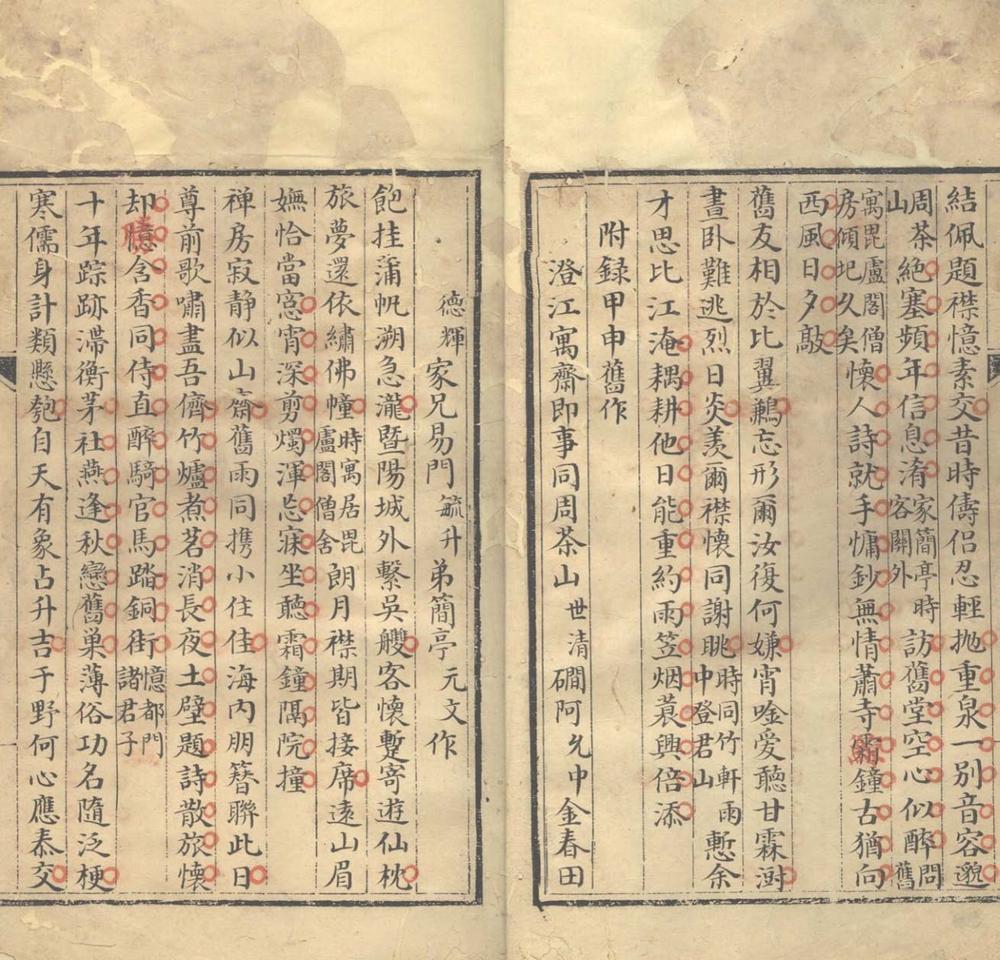 結佩題襟憶素交昔時儔侶忍輕抛重泉一別音容邈
周茶
山 絶塞頻年信息淆 家簡亭時
客關外 訪舊堂空心似醉 舊問
寓毘盧閣僧
房傾圮久矣 懷人詩就手慵鈔無情蕭寺霜鐘古猶向
西風日夕敲
舊友相於比翼鶼忘形爾汝復何嫌宵唫愛聽甘霖澍
晝卧難逃烈日炎羨爾襟懷同謝眺 時同竹軒雨
中登君山 慙余
才思比江淹耦耕他日能重約雨笠烟蓑興倍添
附録甲申舊作
澄江寓齋即事同周茶山 世清 磵阿 允中 金春田
德輝 家兄易門 毓升 弟簡亭 元文 作
飽挂蒲帆溯急瀧暨陽城外繫吳艭客懷蹔寄遊仙枕
旅夢還依繡佛幢 時寓居毘
盧閣僧舍 朗月襟期皆接席遠山眉
嫵恰當窓宵深剪燭渾忘寐坐聽霜鐘隔院撞
禅房寂靜似山齋舊雨同携小住佳海内朋簪聯此日
尊前歌嘯盡吾儕竹爐煮茗消長夜土壁題詩散旅懷
却憶含香同侍直醉騎官馬踏銅街 憶都門
諸君子
十年踪跡滯衡茅社燕逢秋戀舊巢薄俗功名隨泛梗
寒儒身計類懸匏自天有象占升吉于野何心應泰交